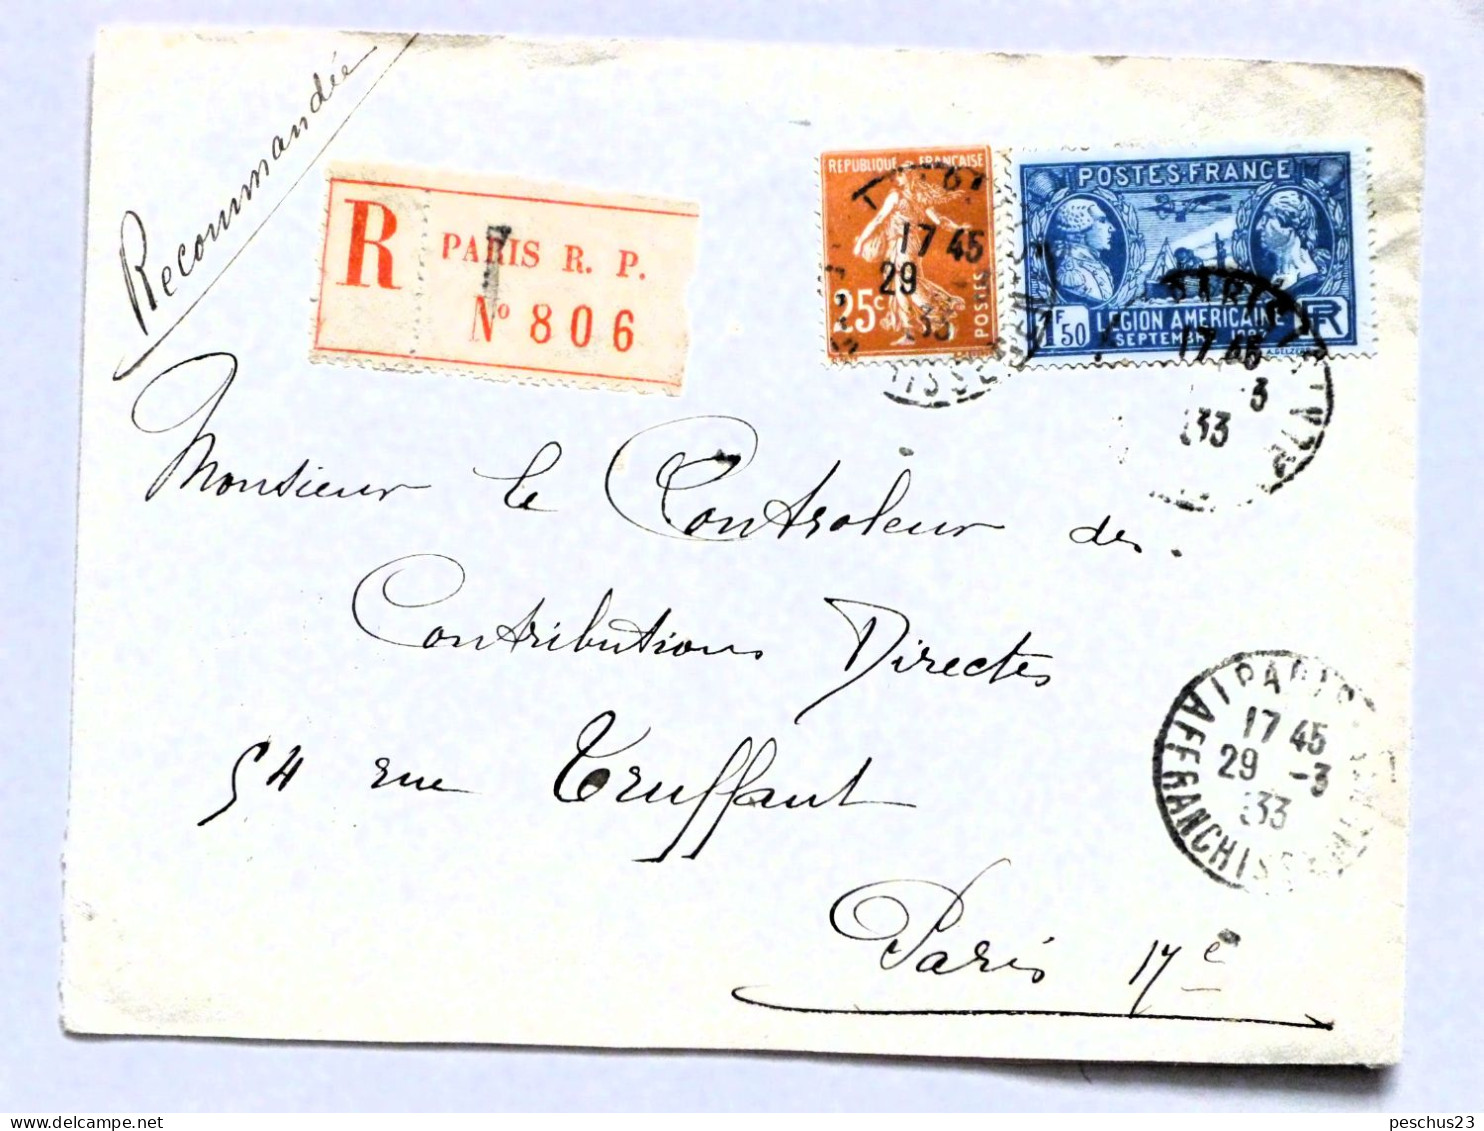 Recommandée
R
PARIS R. P.
N° 806
REPUBLIQUE FRANCAISE
25c
POSTES
17 45
29
33
POSTES-FRANCE
1F50
LEGION AMERICAINE
SEPTEMBRE
RF
17 45
3
33
Monsieur le Controleur des
Contributions Directes
54 rue Truffaut
Paris 17e
PARIS
17 45
29 -3
33
AFFRANCHISSEMENT
peschus23